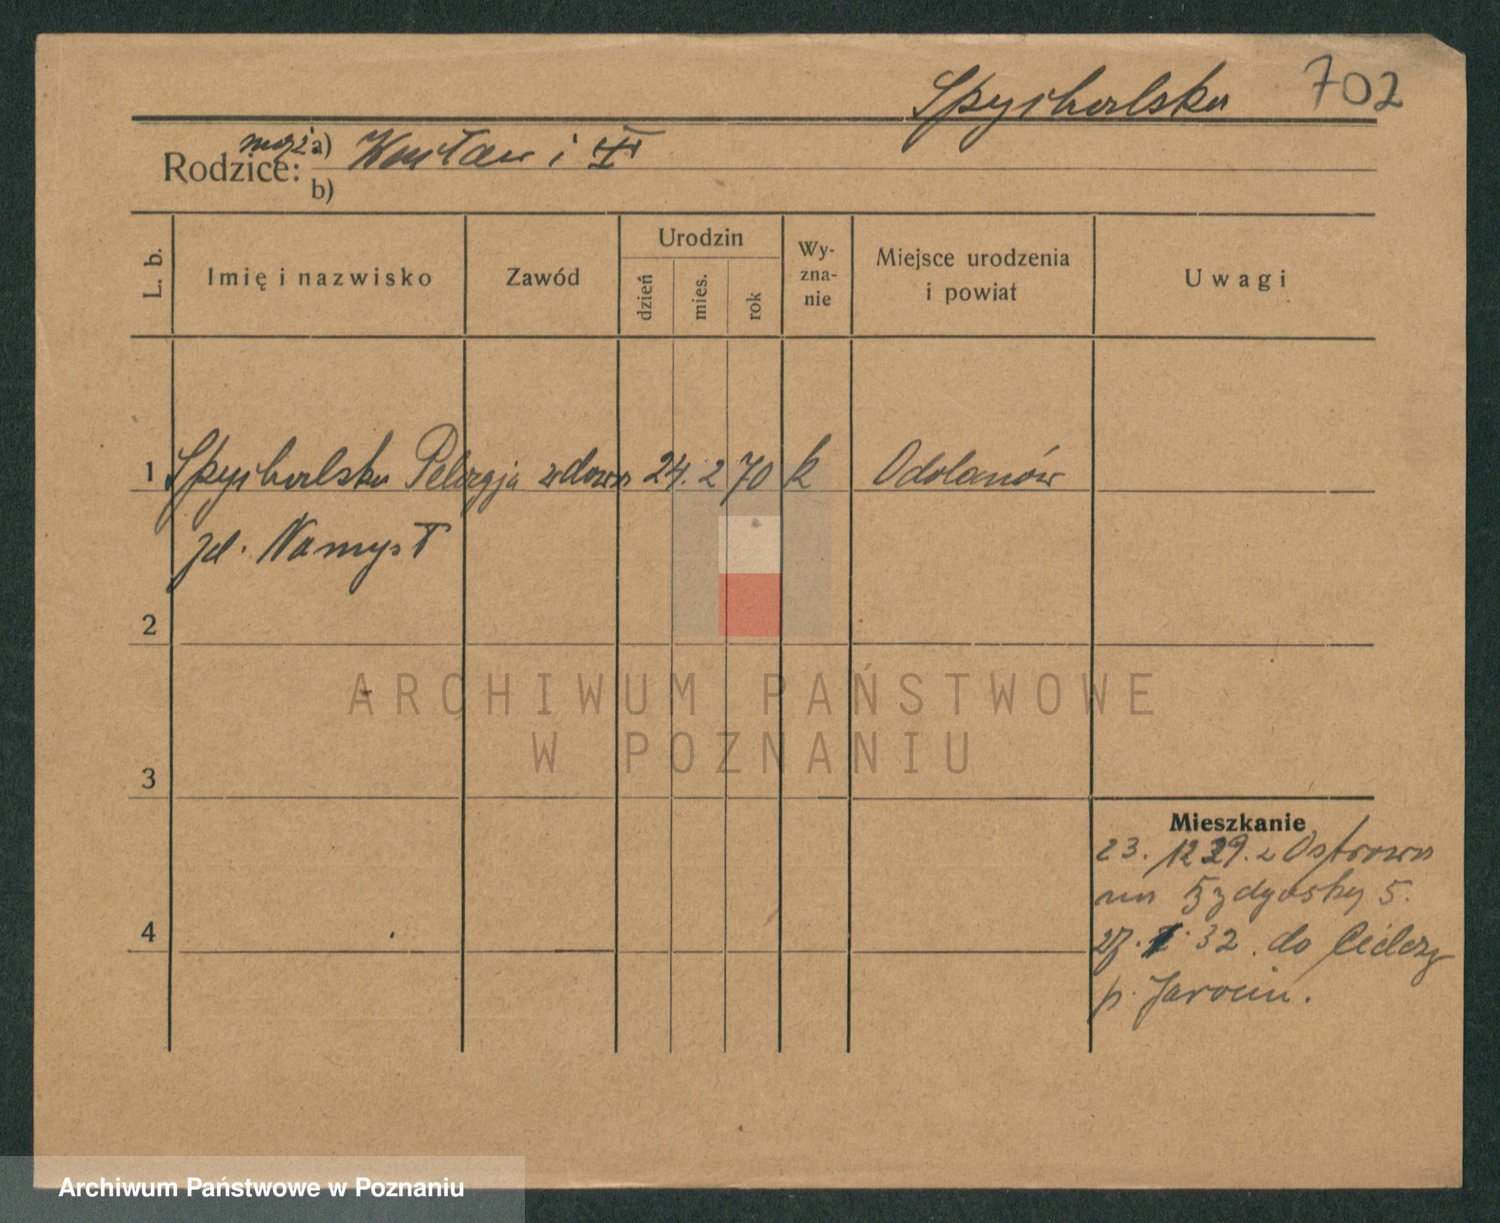 Spychalska 702
Rodzice: mąż a) Wacław i
b)
L. b.
Imię i nazwisko
Zawód
Urodzin
dzień
mies.
rok
Wy-
zna-
nie
Miejsce urodzenia
i powiat
Uwagi
1 Spychalska Pelagja wdowa 24. 2 70 k Odolanów
zd. Namysł
2
3
4
Mieszkanie
23. 12 29. z Ostrowa
5.
27. 1. 32. do
p. Jarocin.
ARCHIWUM PAŃSTWOWE
W POZNANIU
Archiwum Państwowe w Poznaniu